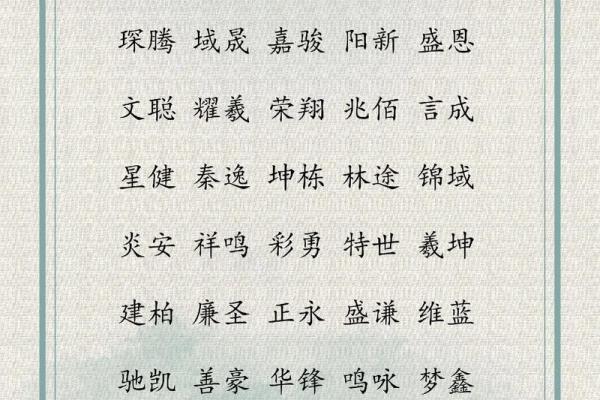 琛腾 域晟 嘉骏 阳新 盛恩
文聪 耀羲 荣翔 兆佰 言成
星健 秦逸 坤栋 林途 锦域
炎安 祥鸣 彩勇 特世 羲坤
建柏 廉圣 正永 盛谦 维蓝
驰凯 善豪 华锋 鸣咏 梦鑫